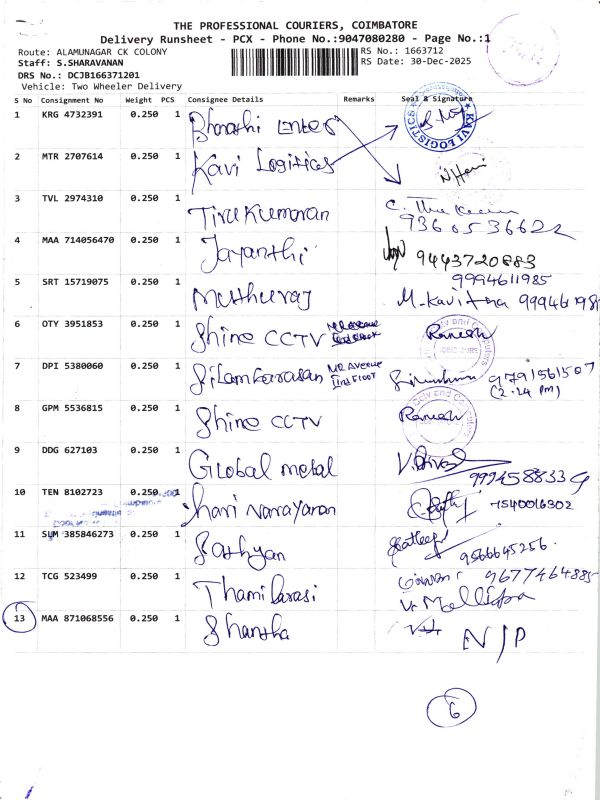 THE PROFESSIONAL COURIERS, COIMBATORE
Delivery Runsheet - PCX - Phone No.:9047080280 - Page No.:1
Route: ALAMUNAGAR CK COLONY
RS No.: 1663712
Staff: S.SHARAVANAN
RS Date: 30-Dec-2025
DRS No.: DCJB166371201
Vehicle: Two Wheeler Delivery
S No Consignment No Weight PCS Consignee Details Remarks Seal & Signature
1 KRG 4732391 0.250 1 Bharathi Enter
KAVI LOGISTICS
2 MTR 2707614 0.250 1 Kavi Logitics
3 TVL 2974310 0.250 1 Tirukumaran
9360536622
4 MAA 714056470 0.250 1 Jayanthi 9443720883
5 SRT 15719075 0.250 1 Muthuraj 9994611985
M. Kavitha
6 OTY 3951853 0.250 1 Shine CCTV Ramesh
7 DPI 5380060 0.250 1 Silambarasan MR Avenue IInd Floor 9791561507
(2.14 PM)
8 GPM 5536815 1 Shine CCTV Ramesh
9 DDG 627103 0.250 1 Global metal
10 TEN 8102723 0.250 1 hari Narayaran 7540016302
11 SUM 385846273 0.250 1 Sathyan 9566645256
12 TCG 523499 0.250 1 Thamilarasi 9677464885
13 MAA 871068556 0.250 1 Shantha N/P
6